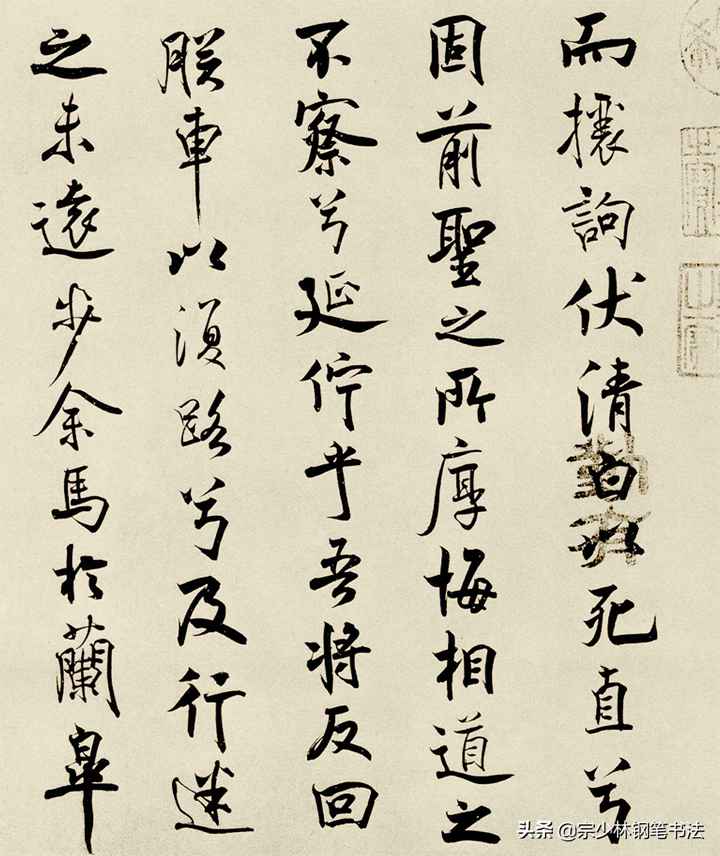 而攘訽伏清白以死直兮
固前聖之所厚悔相道之
不察兮延佇乎吾将反回
朕車以復路兮及行迷
之未遠步余馬於蘭皐
头条 @宗少林钢笔书法